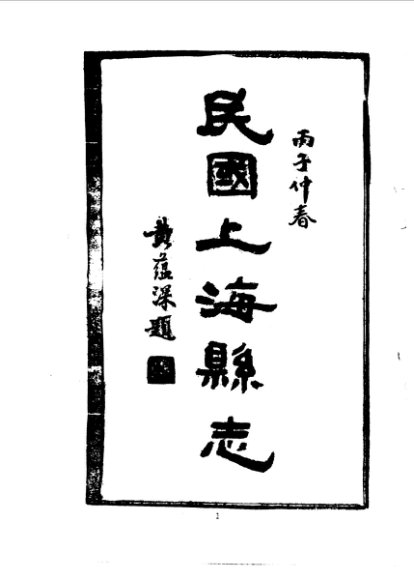 丙子仲春
民國上海縣志
黃蘊深題
1